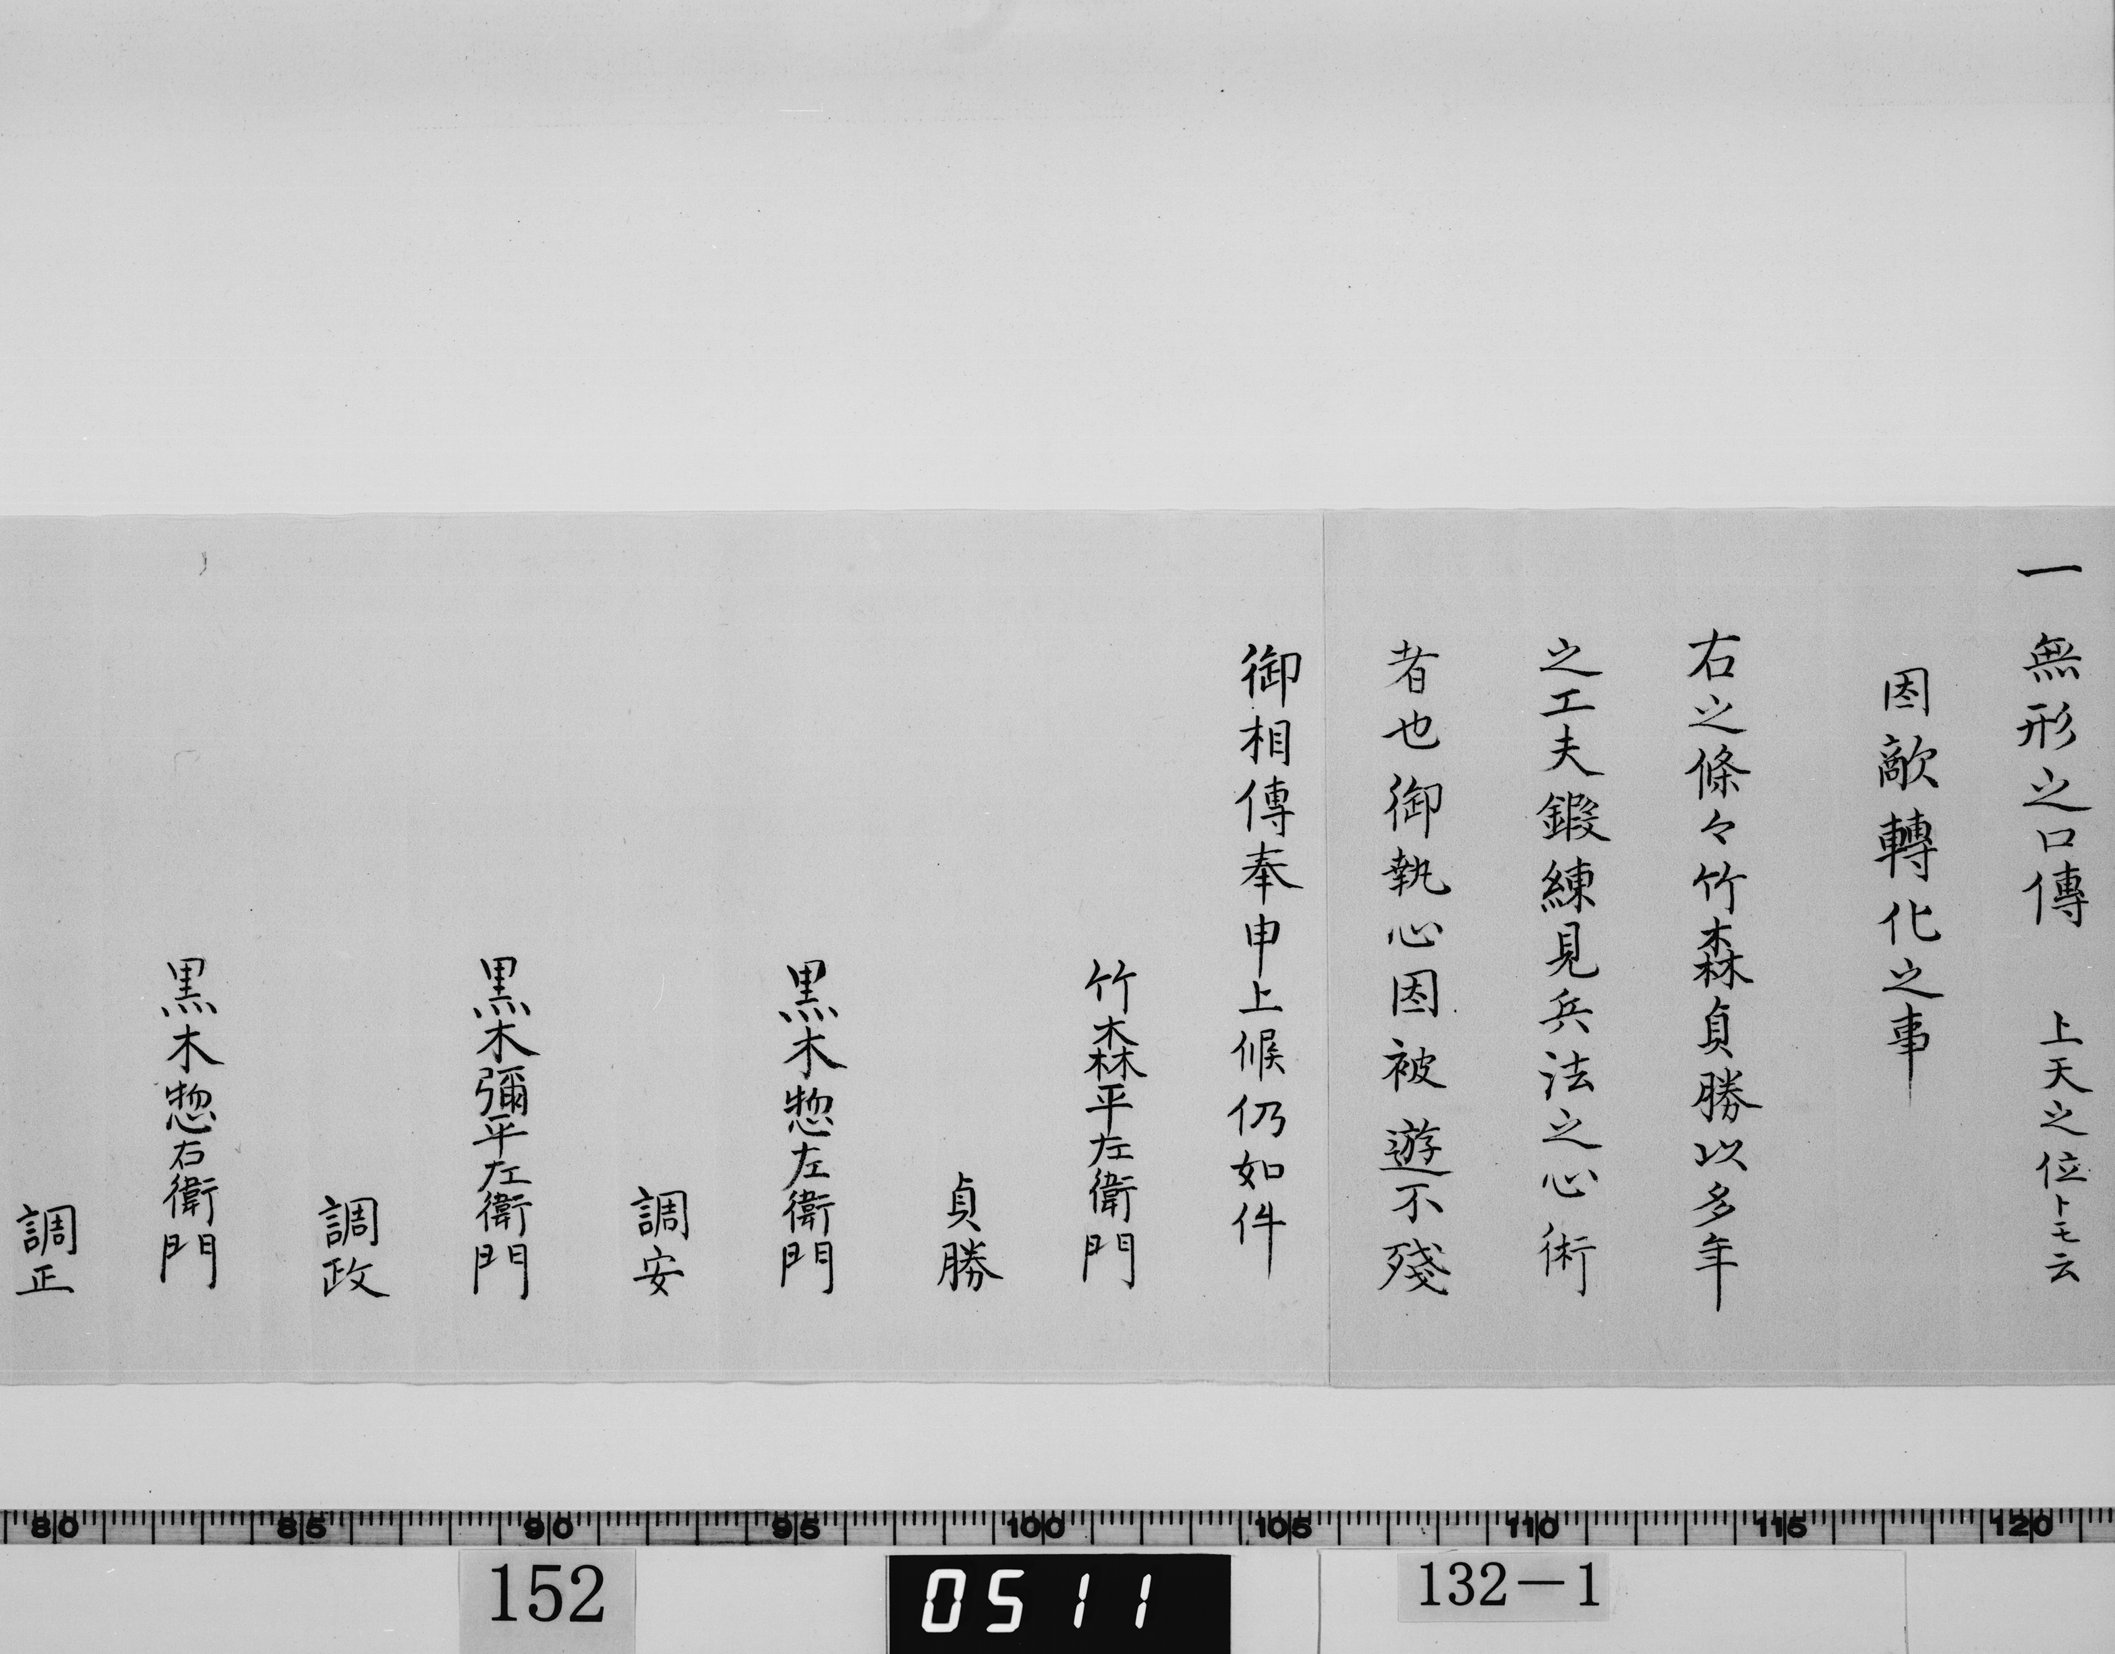 一無形之口傳　上天之位トモ云
因敵轉化之事
右之條々竹森貞勝以多年
之工夫鍛練見兵法之心術
者也御執心因被遊不殘
御相傳奉申上候仍如件
竹森平左衛門
貞勝
黒木惣左衛門
調安
黒木彌平左衛門
調政
黒木惣右衛門
調正
80 85 90 95 100 105 110 115 120
152
0511
132-1